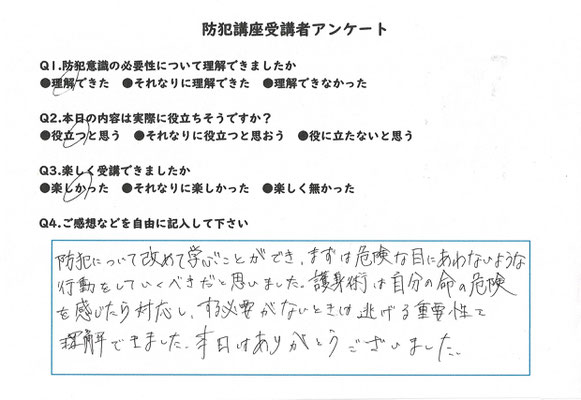 防犯講座受講者アンケート
Q1.防犯意識の必要性について理解できましたか
●理解できた ●それなりに理解できた ●理解できなかった
Q2.本日の内容は実際に役立ちそうですか?
●役立つと思う ●それなりに役立つと思おう ●役に立たないと思う
Q3.楽しく受講できましたか
●楽しかった ●それなりに楽しかった ●楽しく無かった
Q4.ご感想などを自由に記入して下さい
防犯について改めて学ぶことができ、まずは危険な目にあわないような
行動をしていくべきだと思いました。護身術は自分の命の危険
を感じたら対応し、する必要がないときは逃げる重要性て
理解できました。本日はありがとうございました。